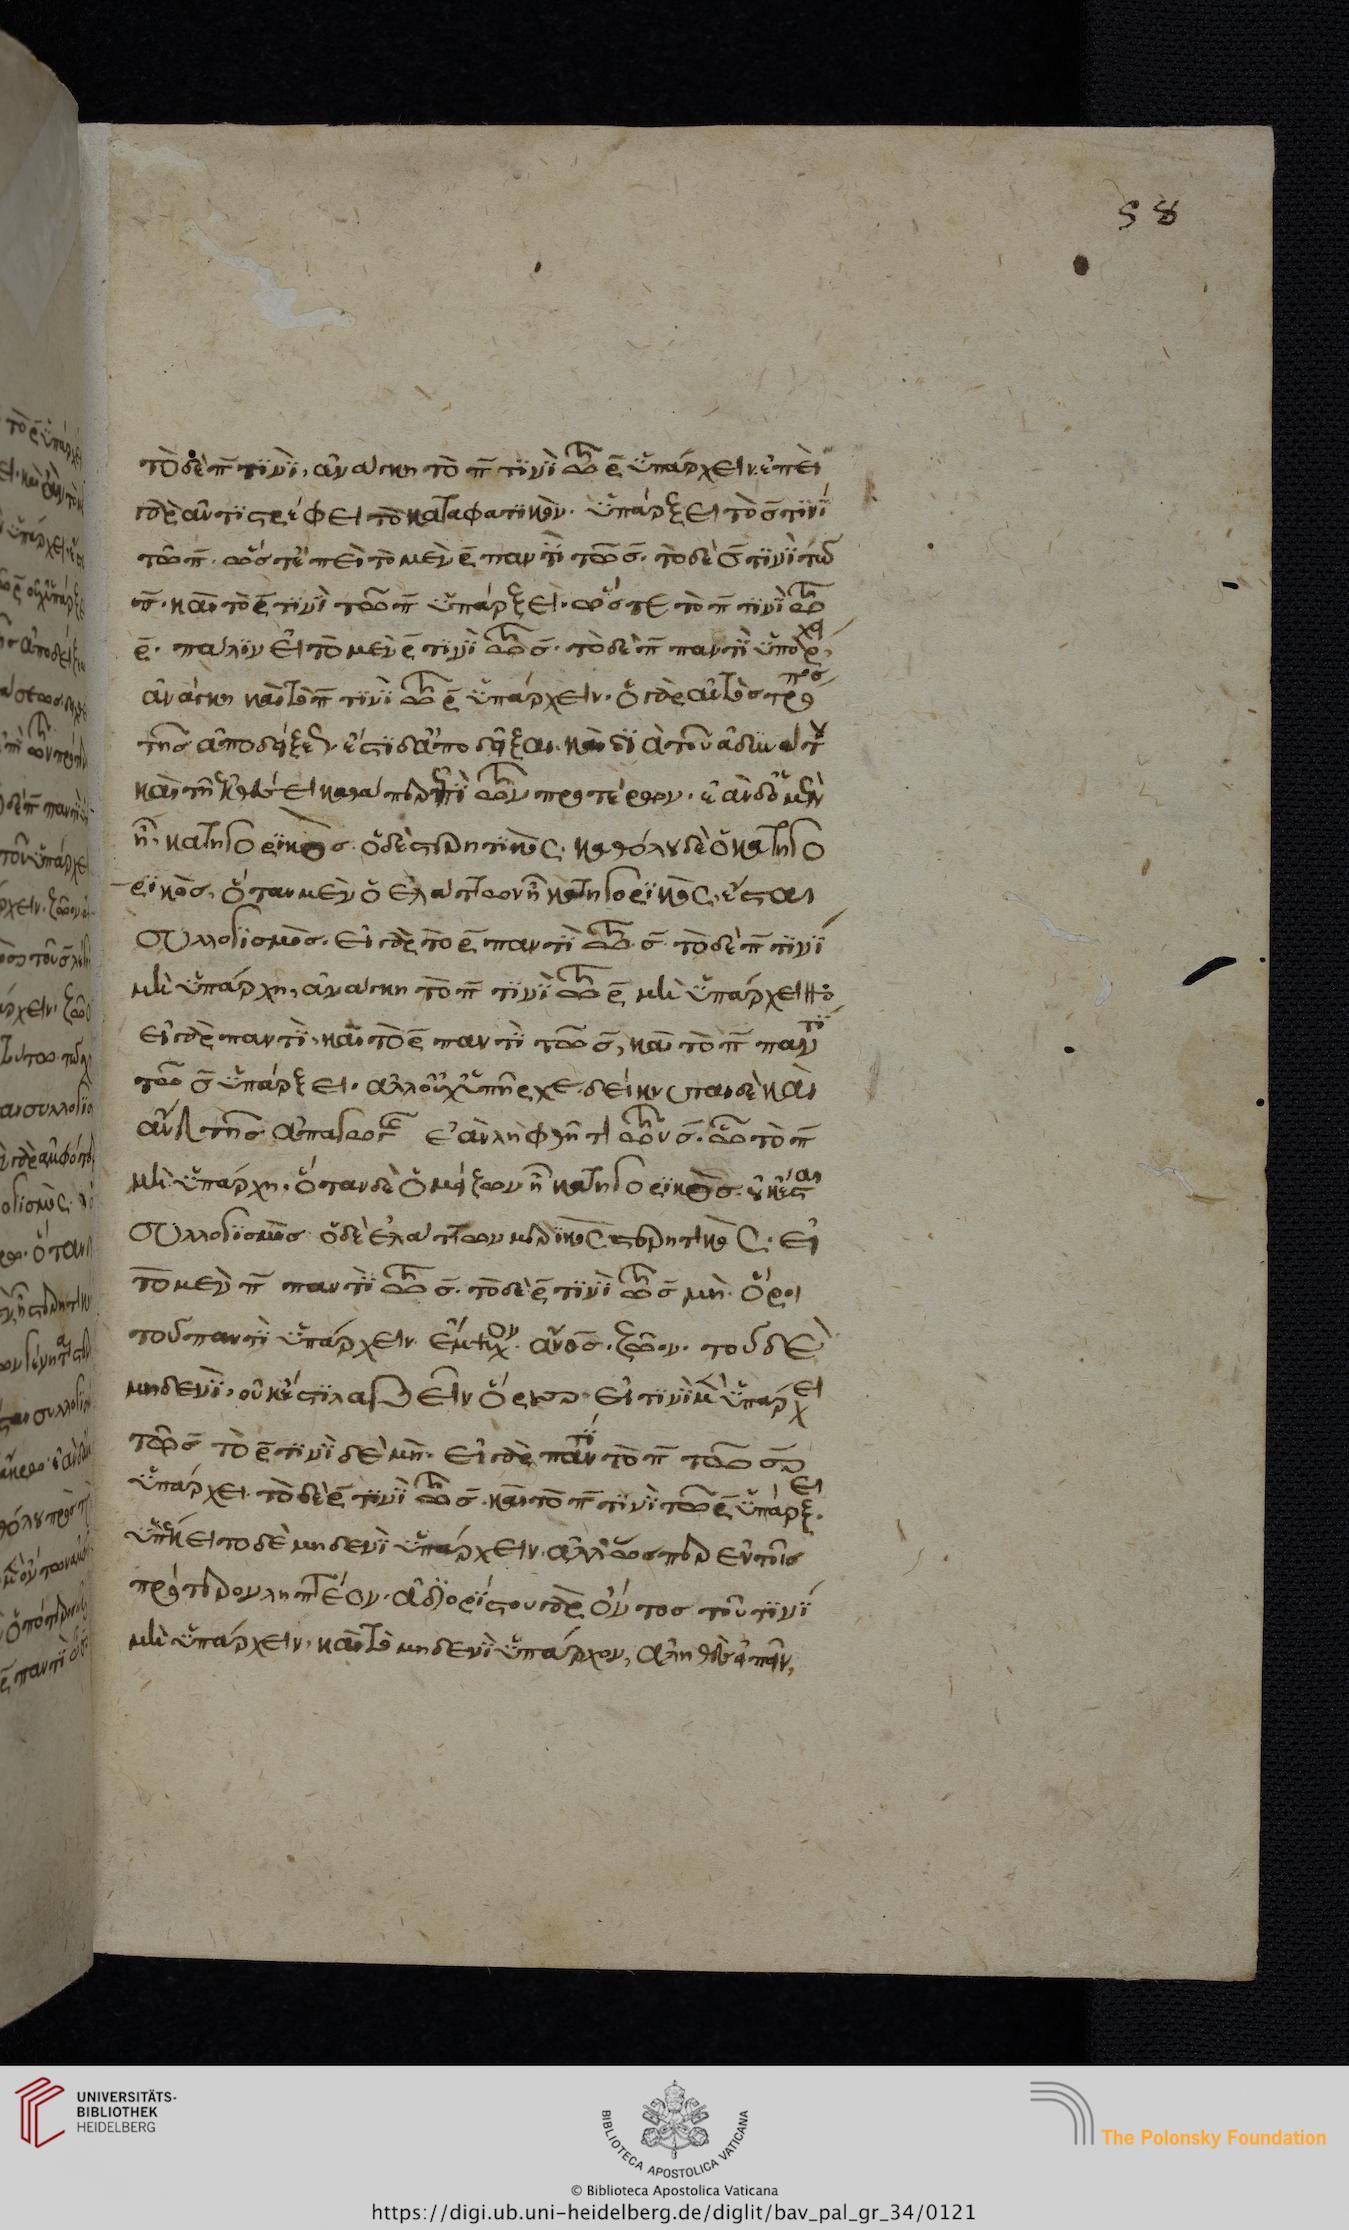 58
τὸ δὲ π̄ τινὶ, ἀνάγκη τὸ π̄ τινὶ τῶν ρ̄ ὑπάρχειν. ἐπεὶ
γὰρ ἀντιστρέφει τὸ καταφατικὸν. ὑπάρξει τὸ σ̄ τινὶ
τῶ π̄. ὥστ' ἐπεὶ τὸ μὲν ρ̄ παντὶ τῶ σ̄. τὸ δὲ σ̄ τινὶ τῶ
π̄. καὶ τὸ ρ̄ τινὶ τῶ π̄ ὑπάρξει. ὥστε τὸ π̄ τινὶ τῶν
ρ̄. πάλιν εἰ τὸ μὲν ρ̄ τινὶ τῶν σ̄. τὸ δὲ π̄ παντὶ ὑπάρχει
ἀνάγκη καὶ τὸ π̄ τινὶ τῶν ρ̄ ὑπάρχειν. ὁ γὰρ αὐτὸς τρόπος
τῆς ἀποδείξεως. ἔστι δ' ἀποδεῖξαι καὶ διὰ τοῦ ἀδυνάτου
καὶ τῆ ἐκθέσει καθάπερ ἐπὶ τῶν προτέρων. ἐὰν δ' ὁ μὲν
ἦ κατηγορικὸς. ὁ δὲ στερητικὸς. καθόλου δὲ ὁ κατηγο
ρικὸς, ὅταν μὲν ὁ ἐλάττων ἦ κατηγορικὸς, ἔσται
συλλογισμὸς. εἰ γὰρ τὸ ρ̄ παντὶ τῶν σ̄. τὸ δὲ π̄ τινὶ
μὴ ὑπάρχη, ἀνάγκη τὸ π̄ τινὶ τῶν ρ̄ μὴ ὑπάρχειν
εἰ γὰρ παντὶ, καὶ τὸ ρ̄ παντὶ τῶ σ̄, καὶ τὸ π̄ παντὶ
τῶ σ̄ ὑπάρξει. ἀλλ' οὐχ ὑπῆρχε. δείκνυται δὲ καὶ
ἄνευ τῆς ἀπαγωγῆς ἐὰν ληφθῆ τι τῶν σ̄. ὧ τὸ π̄
μὴ ὑπάρχη. ὅταν δὲ ὁ μείζων ἦ κατηγορικὸς. οὐκ ἔσται
συλλογισμὸς
τὸ μὲν π̄ παντὶ τῶν σ̄. τὸ δὲ ρ̄ τινὶ τῶν σ̄ μὴ. ὅροι
τοῦ παντὶ ὑπάρχειν. ἔμψυχον. ἄνος. ζῶον. τοῦ δὲ
μηδενὶ. οὐκ ἔστι λαβεῖν ὅρους. εἰ τινὶ μὲν ὑπάρχει
τῶ σ̄ τὸ ρ̄ τινὶ δὲ μὴ. εἰ γὰρ παντὶ τὸ π̄ τῶ σ̄
ὑπάρχει. τὸ δὲ ρ̄ τινὶ τῶν σ̄. καὶ τὸ π̄ τινὶ τῶ ρ̄ ὑπάρξει.
ὑπέκειτο δὲ μηδενὶ ὑπάρχειν. ἀλλ' ὥσπερ ἐν τοῖς
πρότερον ληπτέον. ἀδιορίστου γὰρ ὄντος τοῦ τινὶ
μὴ ὑπάρχειν. καὶ τὸ μηδενὶ ὑπάρχον, ἀληθὲς εἰπεῖν,
UNIVERSITÄTS-
BIBLIOTHEK
HEIDELBERG
BIBLIOTECA APOSTOLICA VATICANA
The Polonsky Foundation
© Biblioteca Apostolica Vaticana
https://digi.ub.uni-heidelberg.de/diglit/bav_pal_gr_34/0121